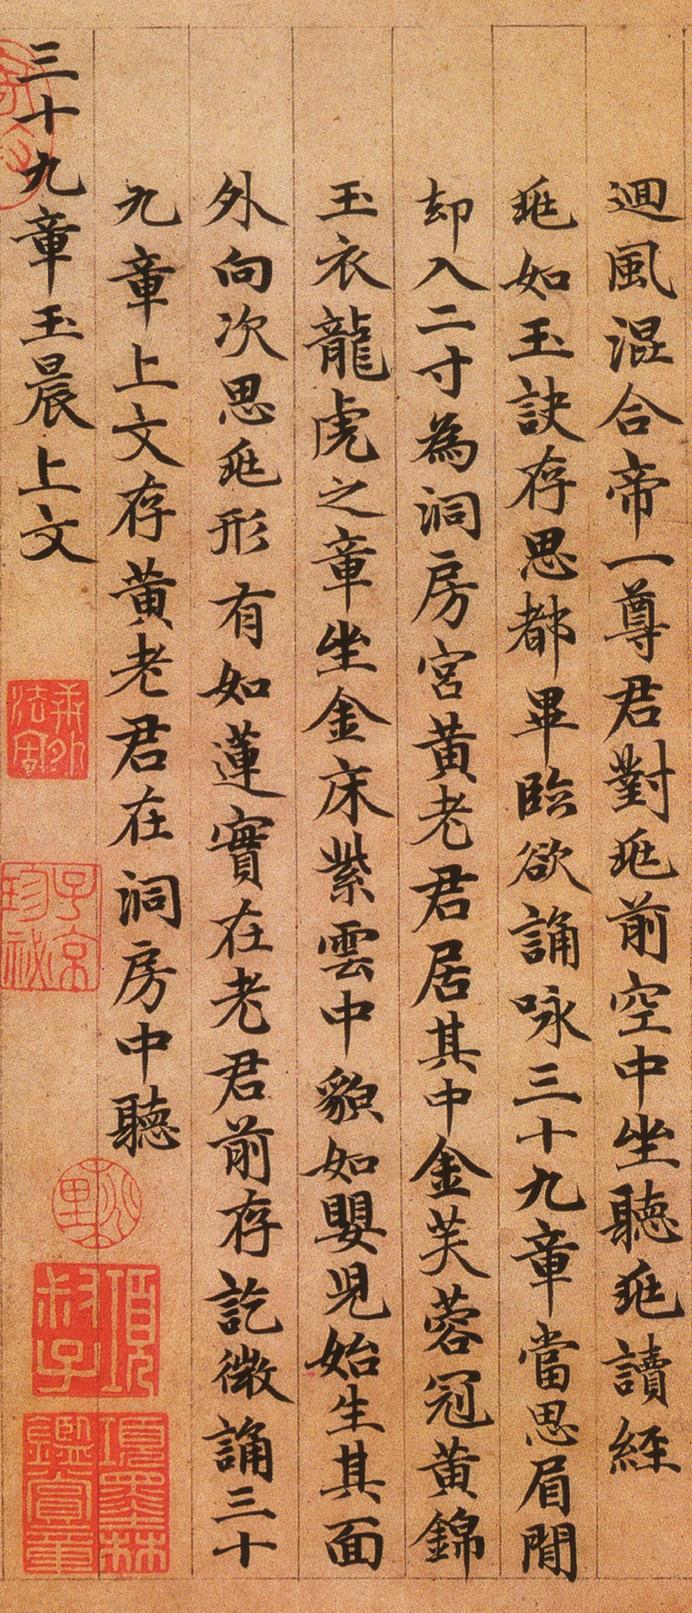 迴風混合帝一尊君對兆前空中坐聽兆讀經
兆如玉訣存思都畢臨欲誦咏三十九章當思眉間
却入二寸為洞房宮黃老君居其中金芙蓉冠黃錦
玉衣龍虎之章坐金床紫雲中貌如嬰兒始生其面
外向次思兆形有如蓮實在老君前存訖微誦三十
九章上文存黃老君在洞房中聽
三十九章玉晨上文
子京珍秘
項叔子
項墨林鑑賞章